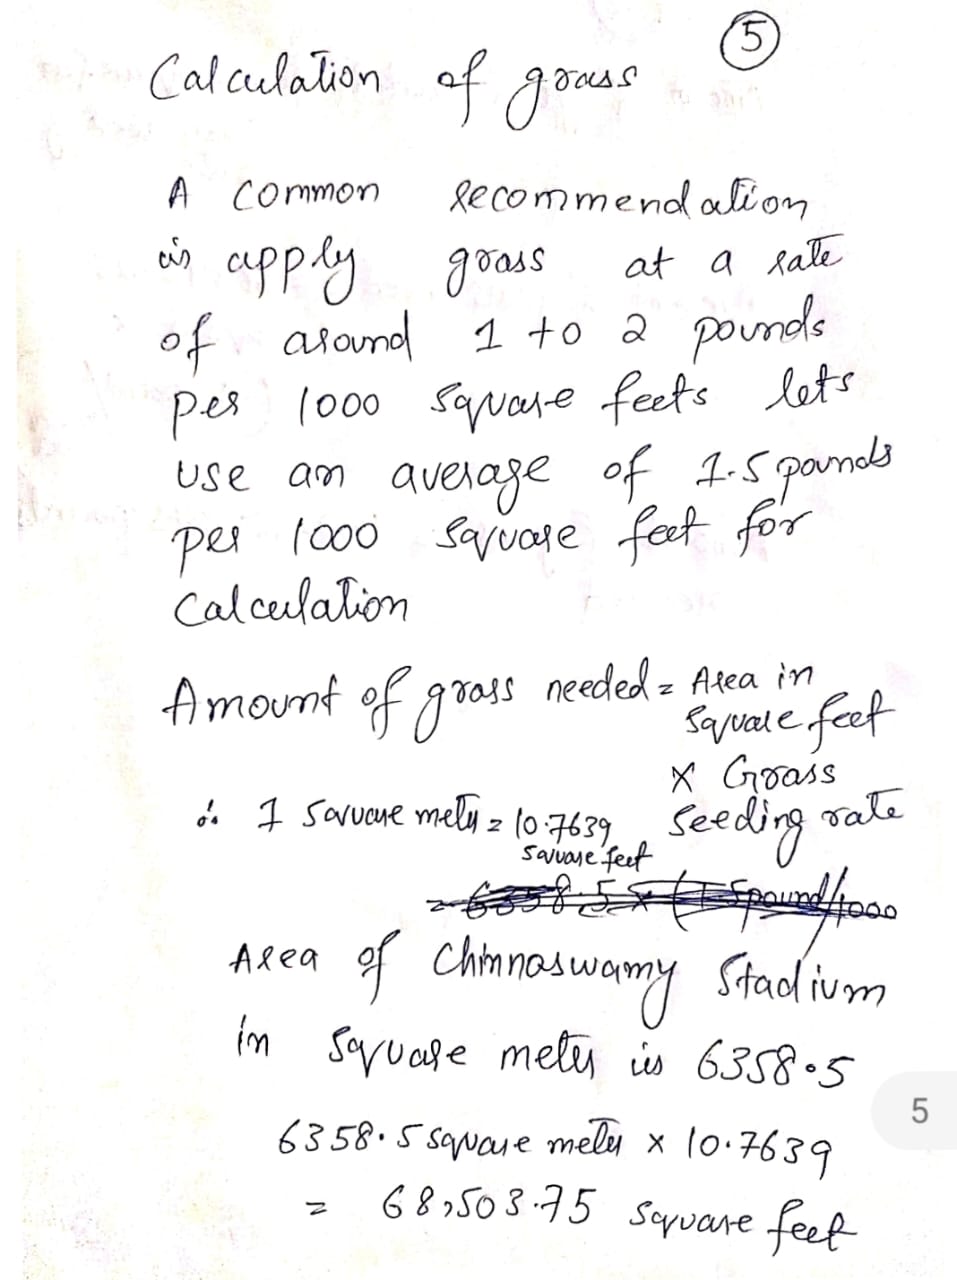 5
Calculation of grass
A common recommendation
is apply grass at a rate
of around 1 to 2 pounds
per 1000 square feets lets
use an average of 1.5 pounds
per 1000 square feet for
Calculation
Amount of grass needed = Area in
square feet
x Grass
seeding rate
∴ 1 square meter = 10.7639
square feet
= 6358.5 x (1.5 pound/1000
Area of Chinnaswamy Stadium
in square meter is 6358.5
6358.5 square meter x 10.7639
= 68,503.75 square feet
5